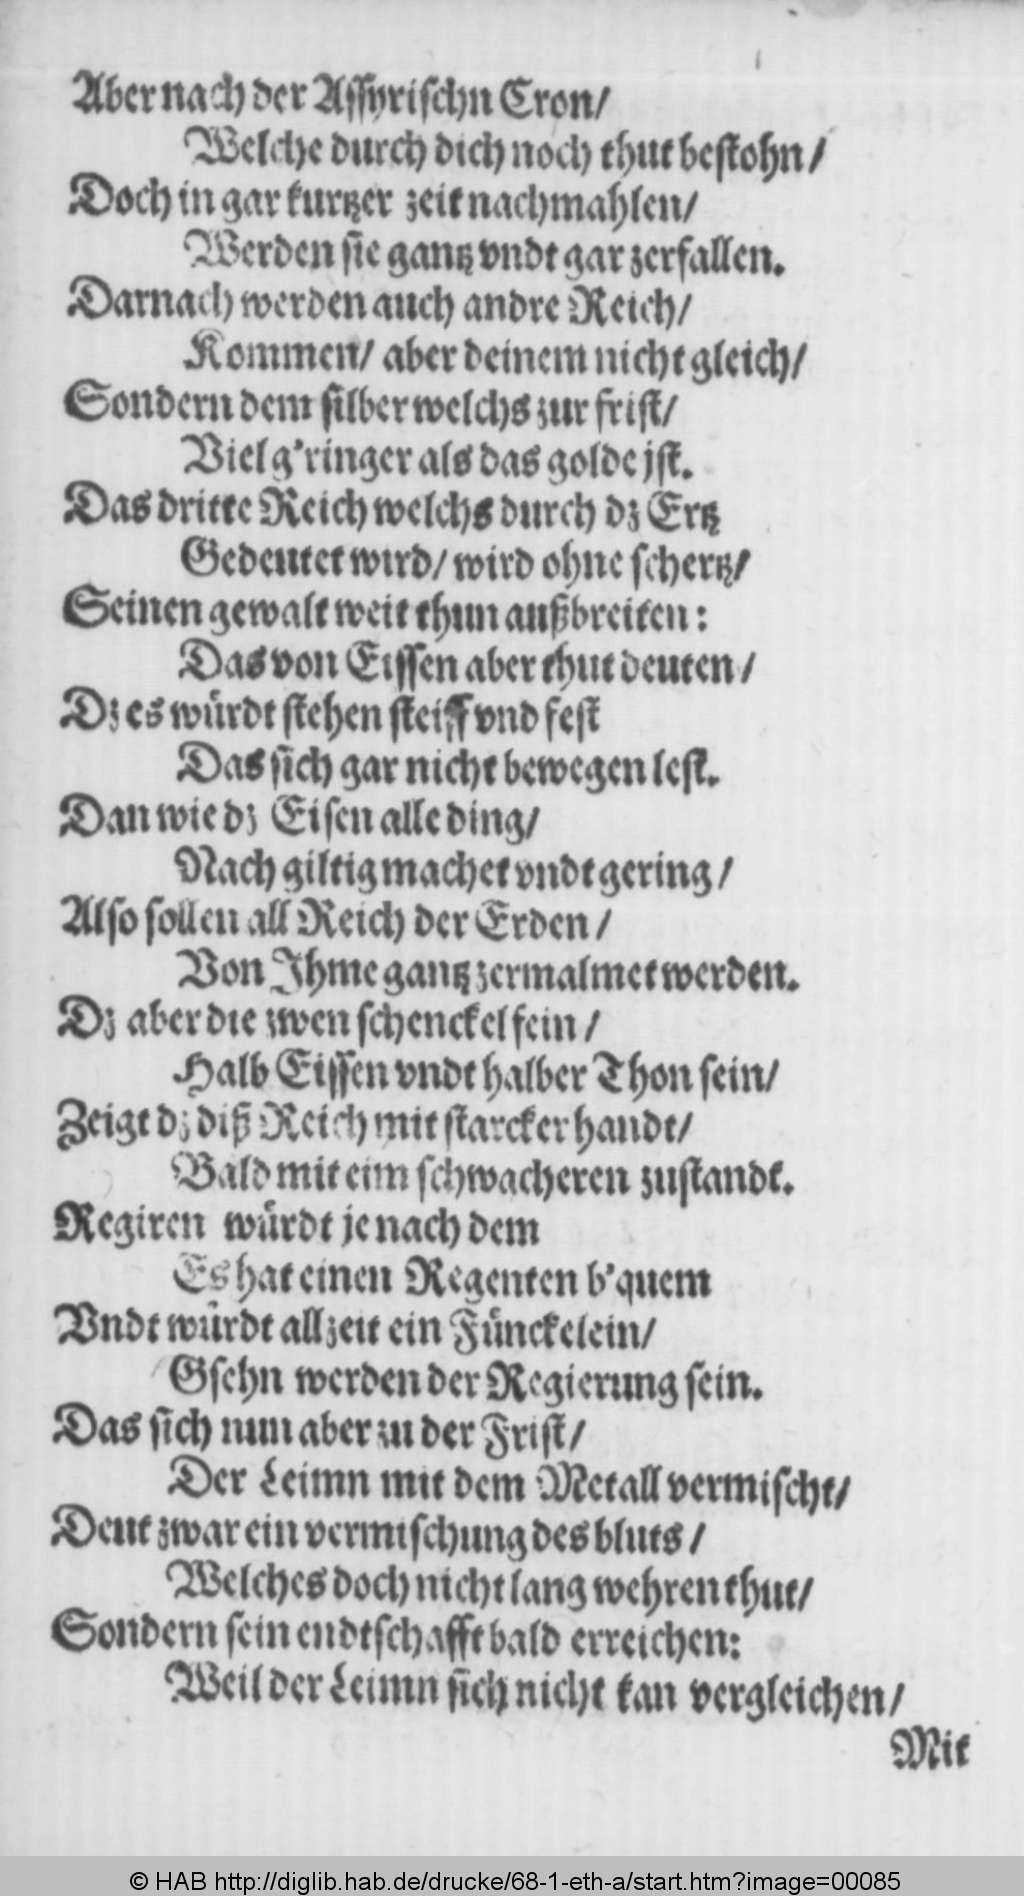 Aber nach der Assyrischn Cron/
Welche durch dich noch thut bestohn/
Doch in gar kurtzer zeit nachmahlen/
Werden sie gantz vndt gar zerfallen.
Darnach werden auch andre Reich/
Kommen/ aber deinem nicht gleich/
Sondern dem silber welchs zur frist/
Viel g'ringer als das golde jst.
Das dritte Reich welchs durch dz Ertz
Gedeutet wird/ wird ohne schertz/
Seinen gewalt weit thun außbreiten:
Das von Eissen aber thut deuten/
Dz es würdt stehen steiff vnd fest
Das sich gar nicht bewegen lest.
Dan wie dz Eisen alle ding/
Nach giltig machet vndt gering/
Also sollen all Reich der Erden/
Von Ihme gantz zermalmet werden.
Dz aber die zwen schenckel fein/
Halb Eissen vndt halber Thon sein/
Zeigt dz diß Reich mit starcker handt/
Bald mit eim schwacheren zustandt.
Regiren würdt je nach dem
Es hat einen Regenten b'quem
Vndt würdt allzeit ein Fünckelein/
Gsehn werden der Regierung sein.
Das sich nun aber zu der Frist/
Der Leimn mit dem Metall vermischt/
Deut zwar ein vermischung des bluts/
Welches doch nicht lang wehren thut/
Sondern sein endtschafft bald erreichen:
Weil der Leimn sich nicht kan vergleichen/
Mit
© HAB http://diglib.hab.de/drucke/68-1-eth-a/start.htm?image=00085